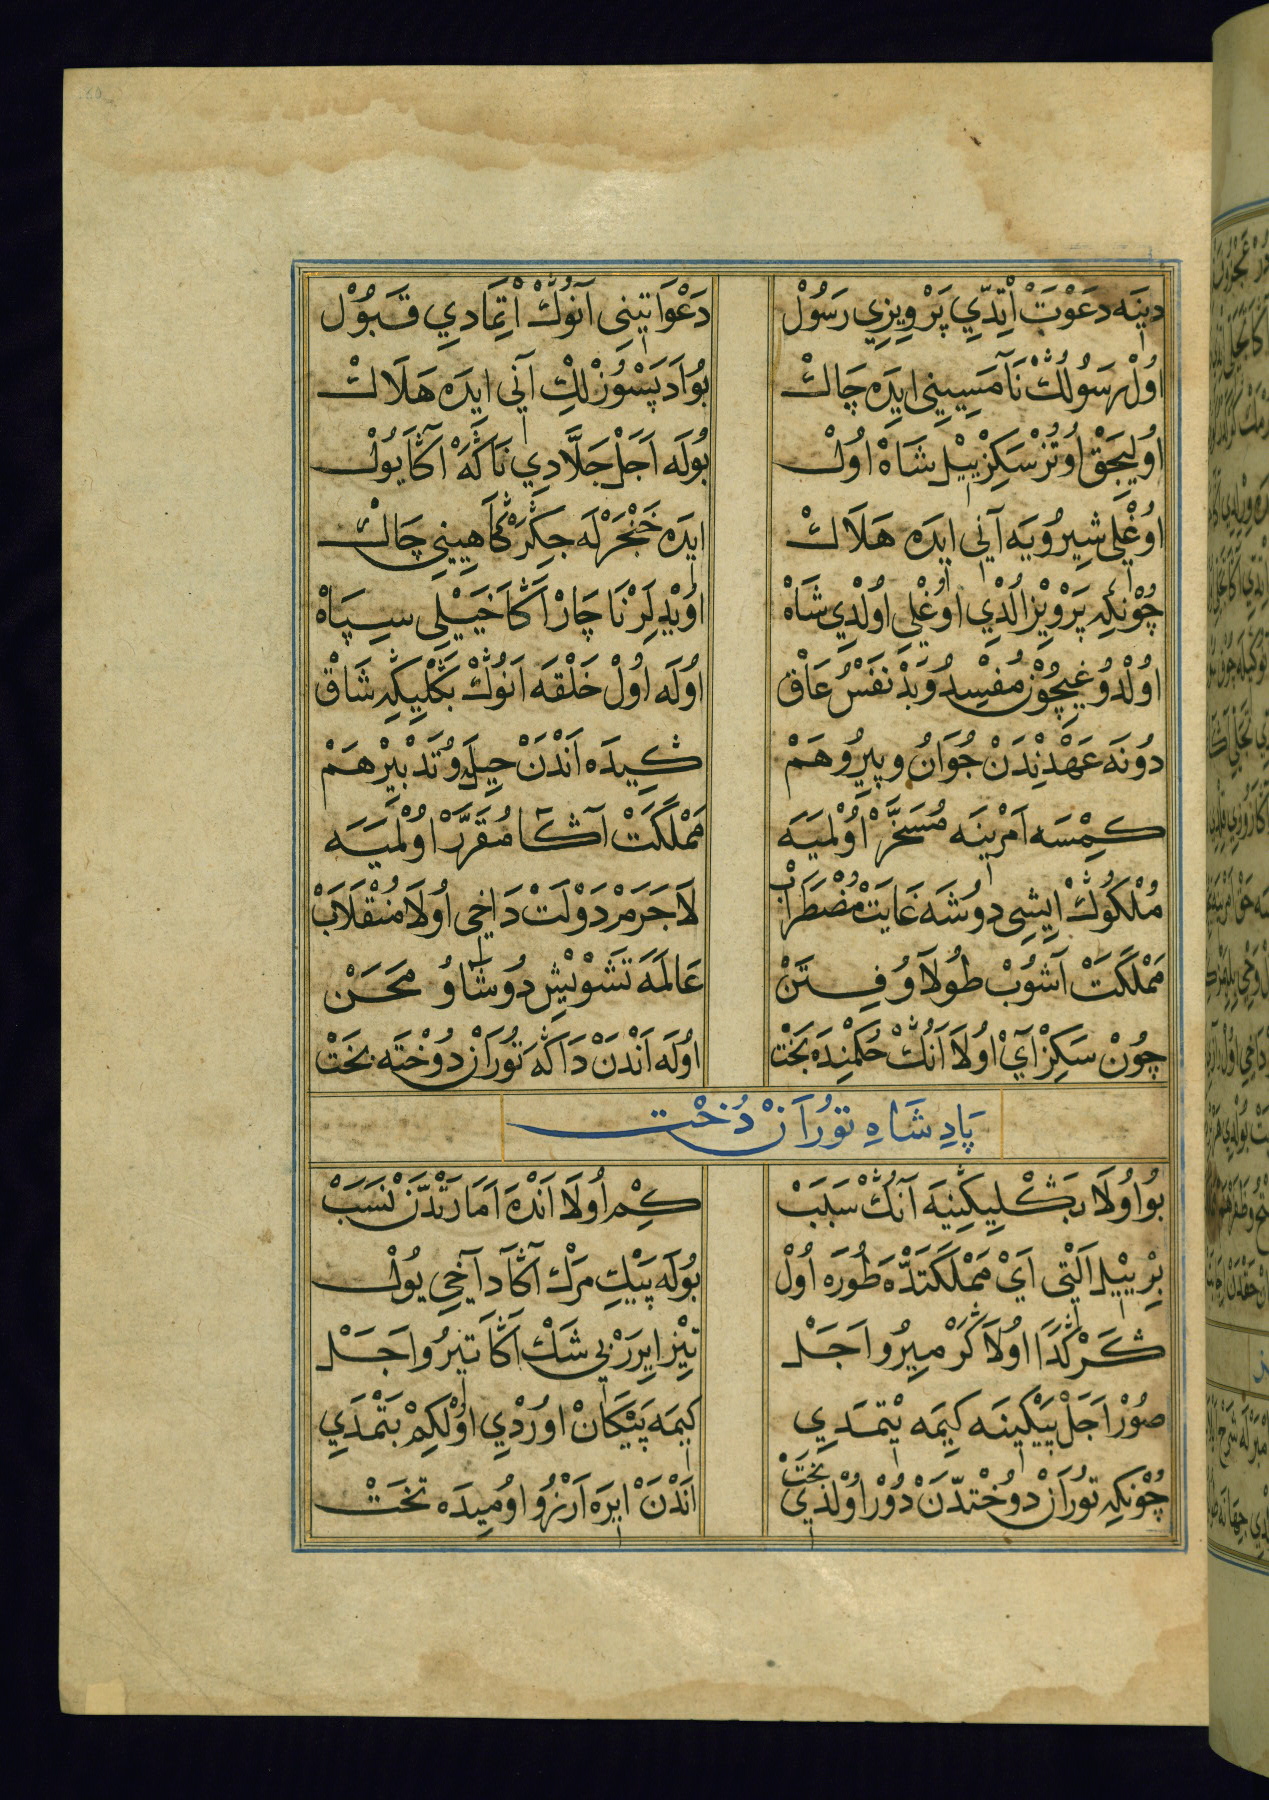 دينه دعوت اتدي پرويزي رسول دعواتيني آنوڭ اتمادي قبول
اول رسولڭ نامسيني ايده چاك بو ادپسوزلك آني ايده هلاك
اوليجق اوتز سكز ييل شاه اول بوله اجل جلادي ناڭه آڭا يول
اوغلي شيرويه آني ايده هلاك ايده خنجرله جڭر ڭاهيني چاك
چونكه پرويز الدي اوغلي اولدي شاه اويديلر ناچار اڭا خيلي سپاه
اولدوغيچون مفسد و بد نفس عاق اوله اول خلقه انوڭ بڭليڭي شاق
دونه عهدندن جوان و پير و هم ڭيده اندن حيله و تدبير هم
كمسه امرينه مسخر اولميه مملكت آڭا مقرر اولميه
ملكوڭ ايشي دوشه غايت مضطراب لاجرم دولت داخي اولا منقلاب
مملكت آشوب طولا و فتن عالمه تشويش دوشا و محن
چون سكز آي اولا انڭ حكمنده تخت اوله اندن داڭه توران دوخته بخت
پادشاه توران دخت
بو اولا بڭليڭينه آنڭ سبب كم اولا انده امارتدن نسب
بر ييل التي اي مملكتده طوره اول بوله پيك مرك آڭا دآخي يول
ڭر ڭدا اولا ڭر مير و اجل تيز ايرر بي شك اڭا تير و اجل
صور اجل پيكينه كيمه يتمدي كيمه پيكان اوردي اولكم بتمدي
چونكه توران دوختدن دور اولدي بخت اندن ايره ارزو اوميده تخت